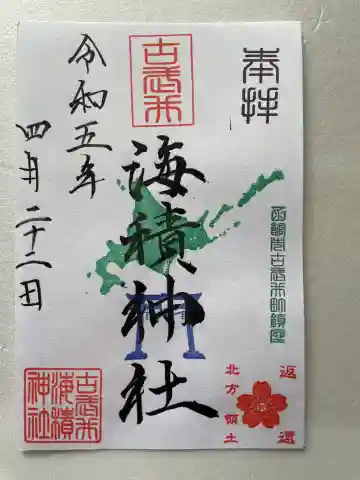 奉拝
函館市古武井町鎮座
古武井
海積神社
令和五年
四月二十二日
返還
北方領土
古武井
海積
神社